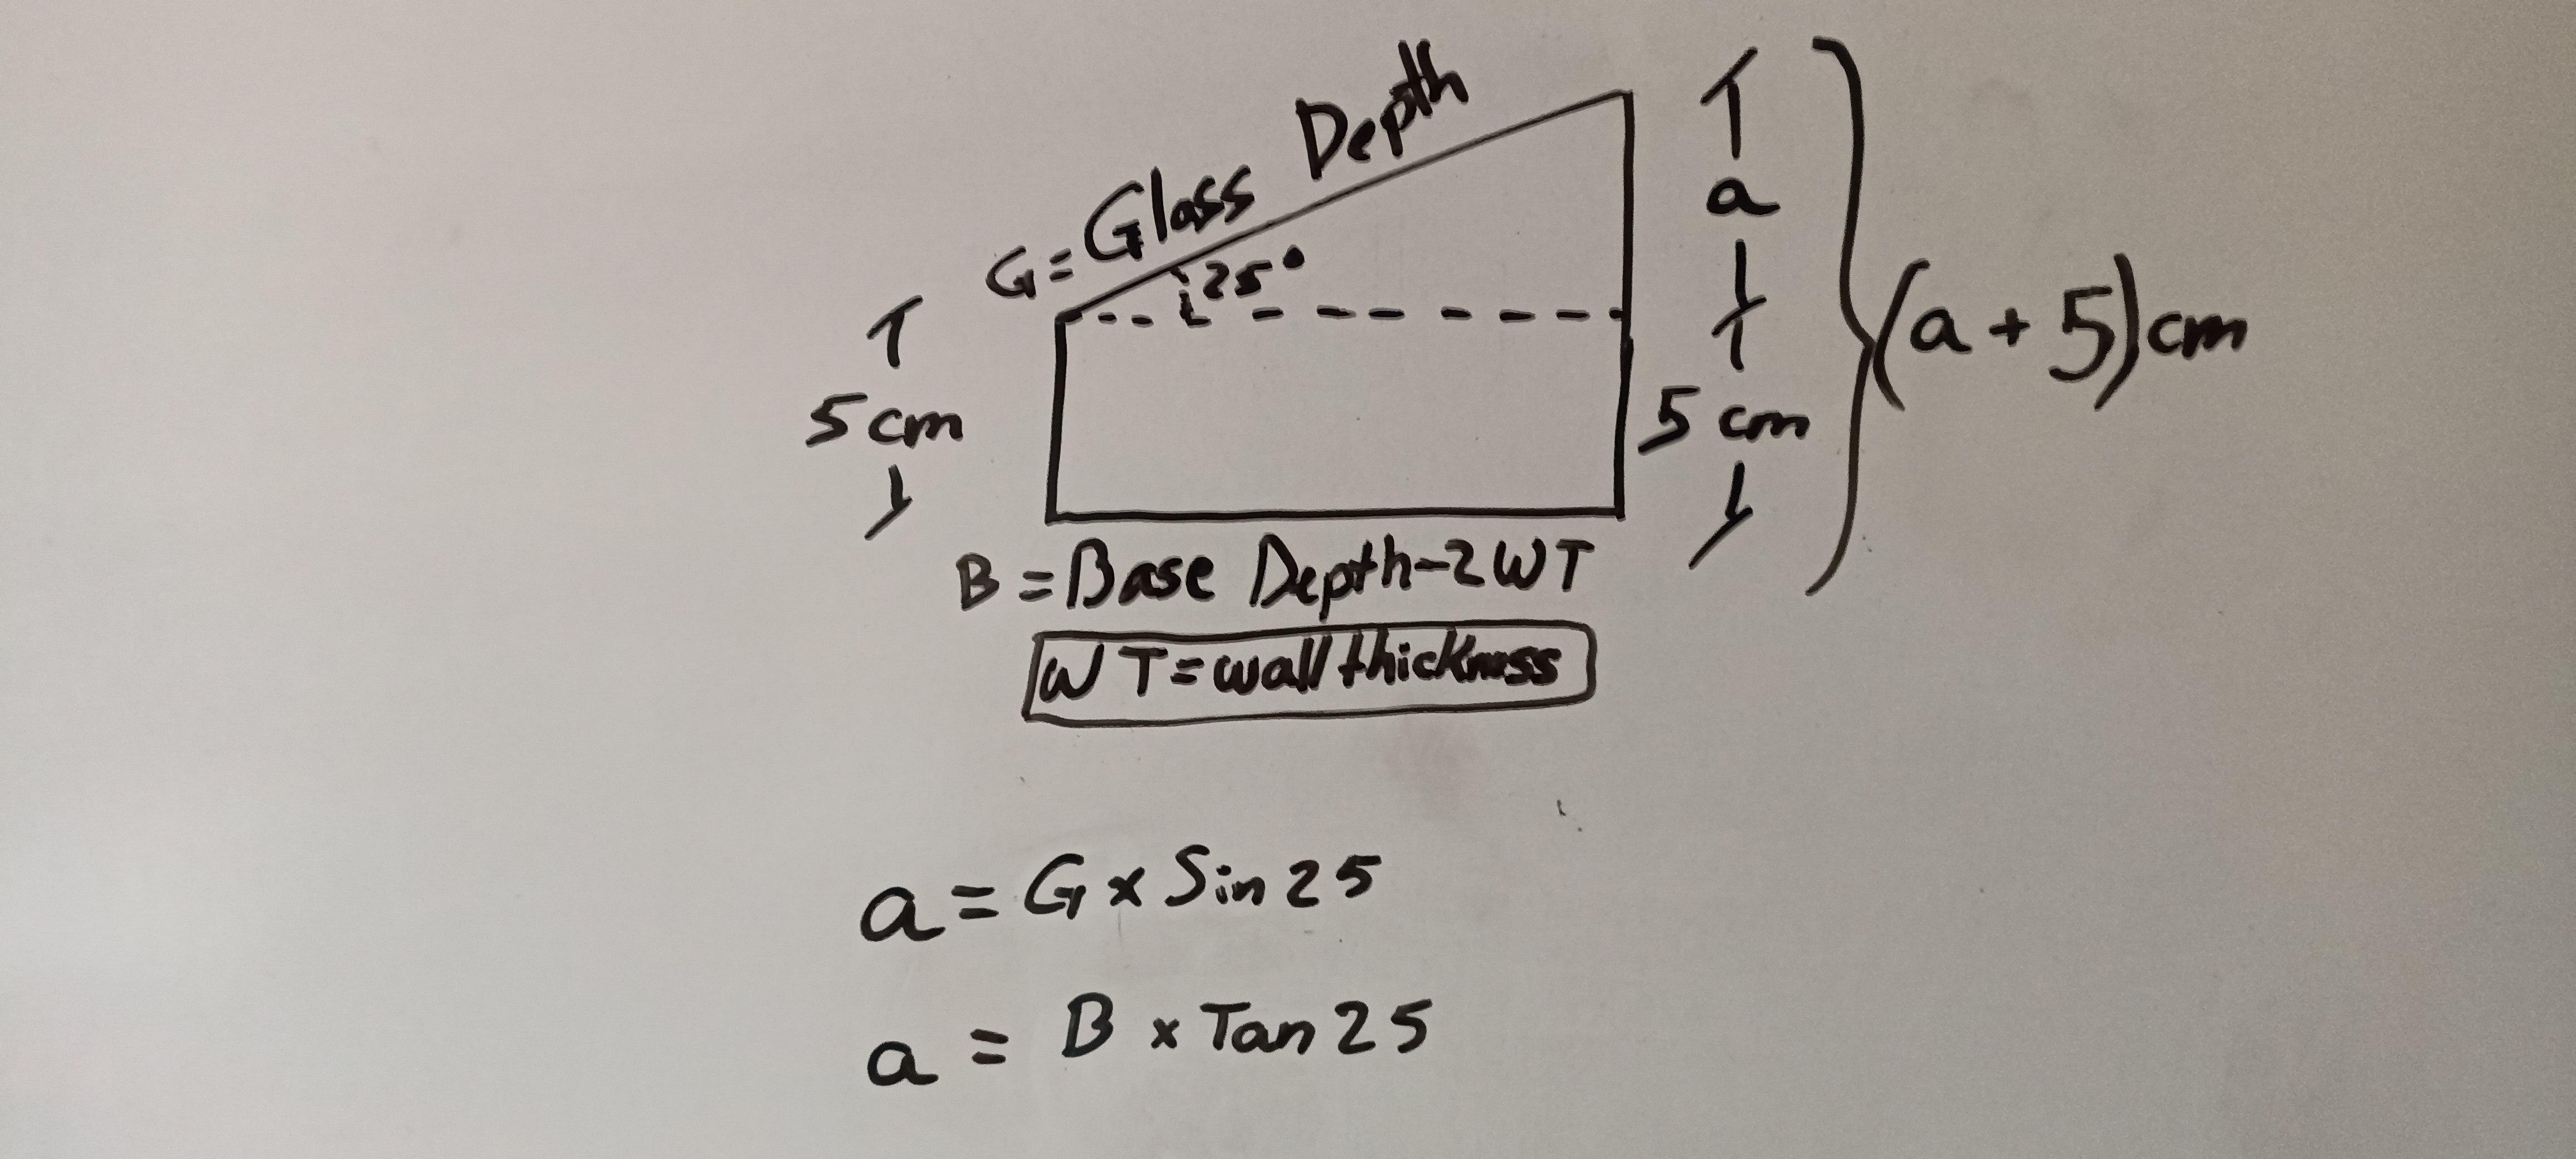 G = Glass Depth
25°
a
5 cm
5 cm
(a + 5) cm
B = Base Depth - 2WT
WT = wall thickness
a = G x Sin 25
a = B x Tan 25